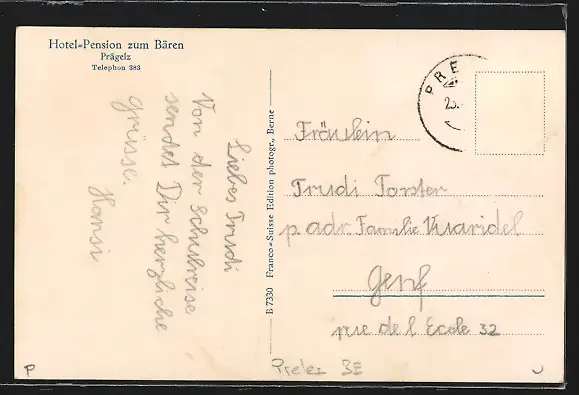 Hotel-Pension zum Bären
Prägelz
Telephon 383
Liebes Trudi
Von der Schulreise
sendet Dir herzliche
Grüsse.
Hansi
B 7330 Franco-Suisse Edition photogr., Berne
PRE
23.
Fräulein
Trudi Forster
p. adr. Familie Muaridel
Genf
rue de l Ecole 32
Preles BE
P